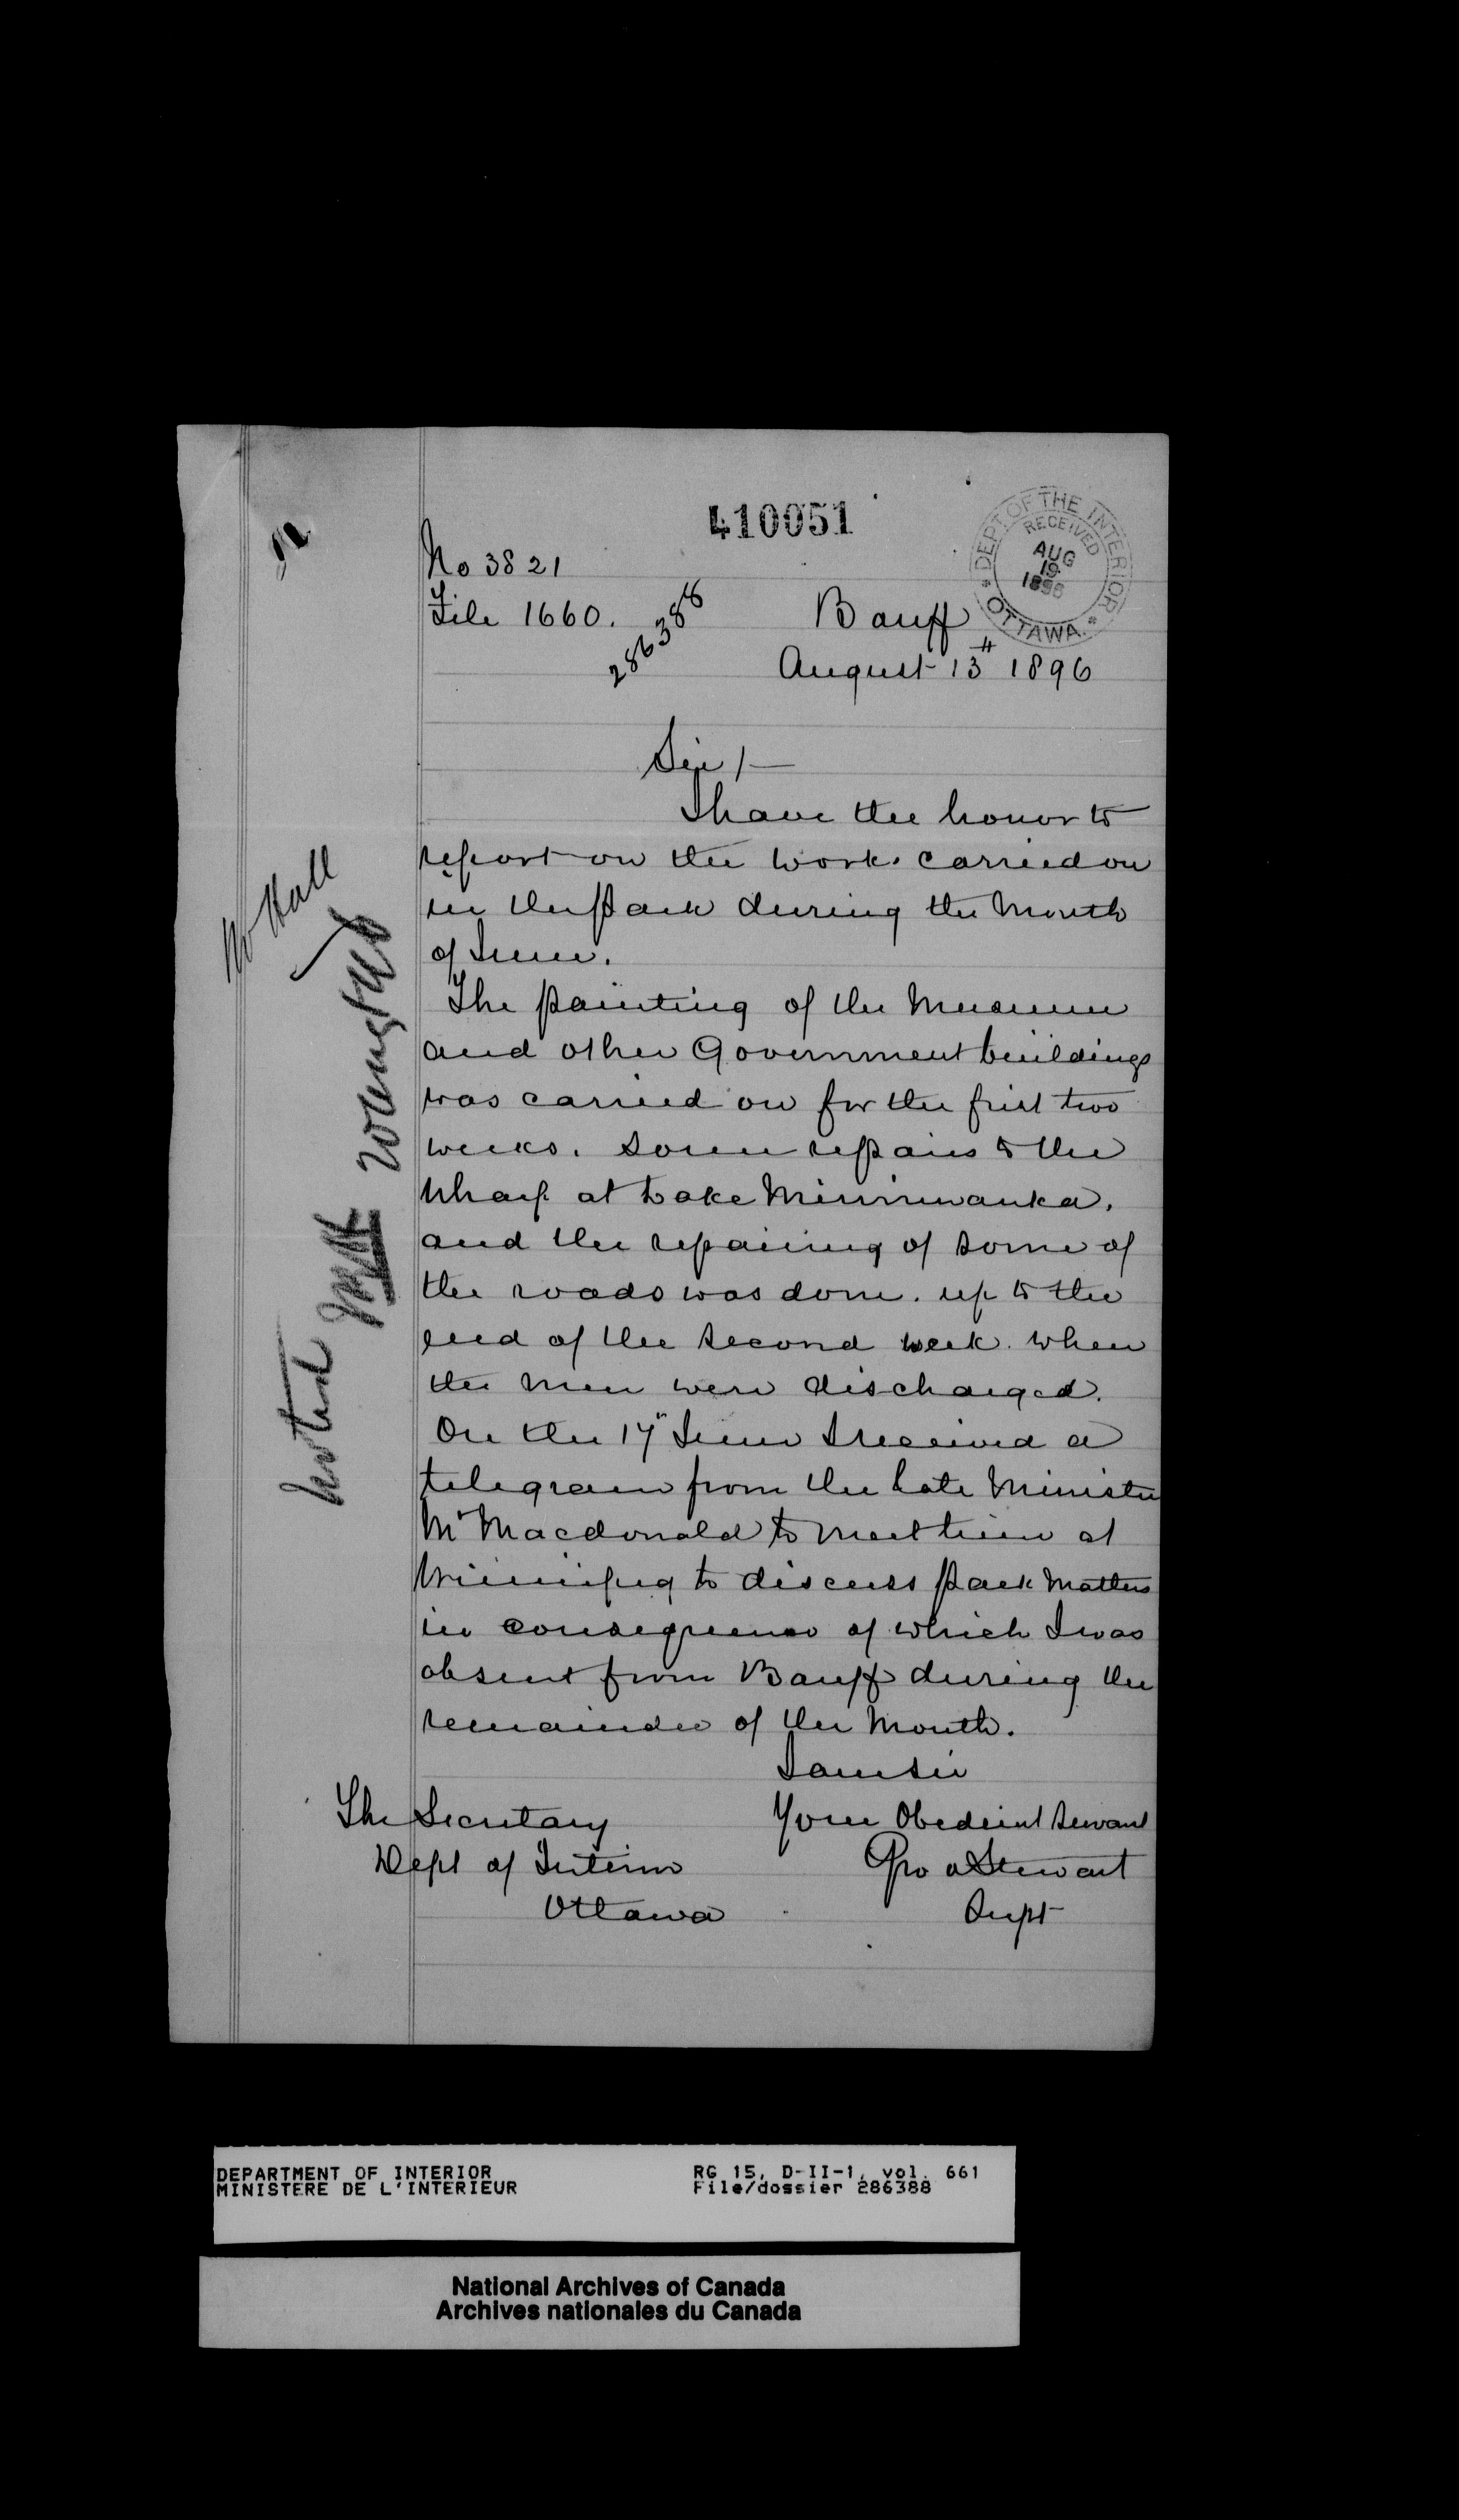 410051
DEPT. OF THE INTERIOR
RECEIVED
AUG
19
1896
OTTAWA
No 3821
File 1660.
286388
Banff
August 13th 1896
Mr Hall
Noted
Sir/-
I have the honor to
report on the work. carried on
in the Park during the month
of June.
The painting of the Museum
and other Government buildings
was carried on for the first two
weeks. Some repairs to the
Wharf at Lake Minniwanka.
and the repairing of some of
the roads was done. up to the
end of the second week. when
the men were discharged.
On the 17" June I received a
telegram from the late Minister
Mr Macdonald to meet him at
Winnipeg to discuss Park matters
in consequence of which I was
absent from Banff during the
remainder of the month.
I am Sir
Your Obedient Servant
Geo A Stewart
Supt
The Secretary
Dept of Interior
Ottawa
DEPARTMENT OF INTERIOR
MINISTERE DE L'INTERIEUR
RG 15, D-II-1, vol. 661
File/dossier 286388
National Archives of Canada
Archives nationales du Canada